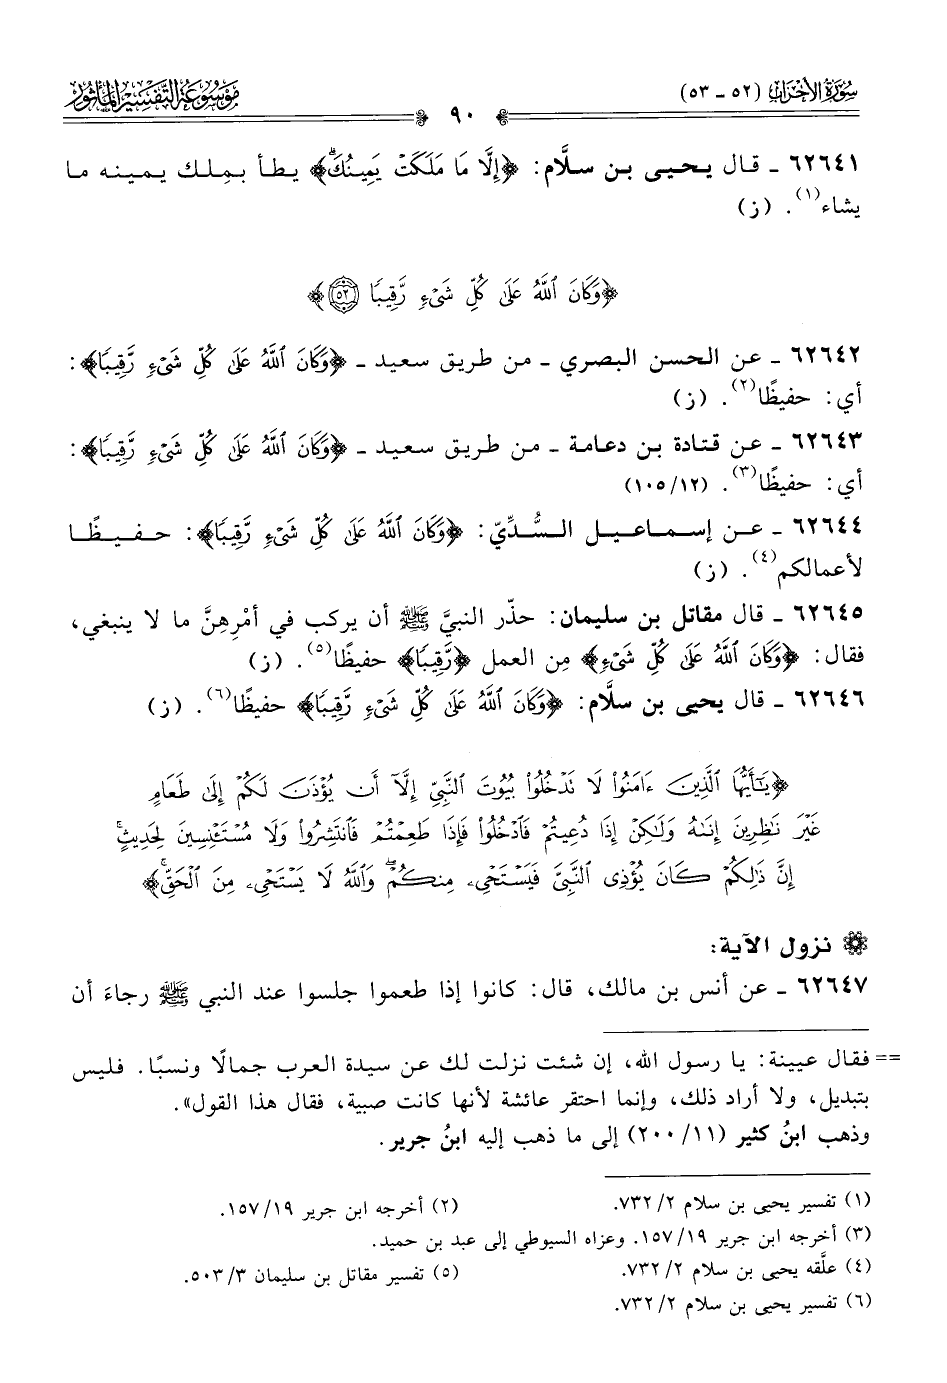 سورة الأحزاب (٥٢ - ٥٣)
٩٠
موسوعة التفسير المأثور
٦٢٦٤١ - قال يحيى بن سلَّام: ﴿إِلَّا مَا مَلَكَتْ يَمِينُكَۗ﴾ يطأ بمِلك يمينه ما
يشاء(١). (ز)
﴿وَكَانَ ٱللَّهُ عَلَىٰ كُلِّ شَىْءٍ رَّقِيبًا ۝٥٢﴾
٦٢٦٤٢ - عن الحسن البصري - من طريق سعيد - ﴿وَكَانَ ٱللَّهُ عَلَىٰ كُلِّ شَىْءٍ رَّقِيبًا﴾:
أي: حفيظًا(٢). (ز)
٦٢٦٤٣ - عن قتادة بن دعامة - من طريق سعيد - ﴿وَكَانَ ٱللَّهُ عَلَىٰ كُلِّ شَىْءٍ رَّقِيبًا﴾:
أي: حفيظًا(٣). (١٢/١٠٥)
٦٢٦٤٤ - عن إسماعيل السُّدِّيّ: ﴿وَكَانَ ٱللَّهُ عَلَىٰ كُلِّ شَىْءٍ رَّقِيبًا﴾: حفيظًا
لأعمالكم(٤). (ز)
٦٢٦٤٥ - قال مقاتل بن سليمان: حذّر النبيَّ ﷺ أن يركب في أمْرِهِنَّ ما لا ينبغي،
فقال: ﴿وَكَانَ ٱللَّهُ عَلَىٰ كُلِّ شَىْءٍ﴾ مِن العمل ﴿رَّقِيبًا﴾ حفيظًا(٥). (ز)
٦٢٦٤٦ - قال يحيى بن سلَّام: ﴿وَكَانَ ٱللَّهُ عَلَىٰ كُلِّ شَىْءٍ رَّقِيبًا﴾ حفيظًا(٦). (ز)
﴿يَـٰٓأَيُّهَا ٱلَّذِينَ ءَامَنُوا۟ لَا تَدْخُلُوا۟ بُيُوتَ ٱلنَّبِىِّ إِلَّآ أَن يُؤْذَنَ لَكُمْ إِلَىٰ طَعَامٍ
غَيْرَ نَـٰظِرِينَ إِنَىٰهُ وَلَـٰكِنْ إِذَا دُعِيتُمْ فَٱدْخُلُوا۟ فَإِذَا طَعِمْتُمْ فَٱنتَشِرُوا۟ وَلَا مُسْتَـْٔنِسِينَ لِحَدِيثٍۚ
إِنَّ ذَٰلِكُمْ كَانَ يُؤْذِى ٱلنَّبِىَّ فَيَسْتَحْىِۦ مِنكُمْۖ وَٱللَّهُ لَا يَسْتَحْىِۦ مِنَ ٱلْحَقِّۚ﴾
نزول الآية:
٦٢٦٤٧ - عن أنس بن مالك، قال: كانوا إذا طعموا جلسوا عند النبي ﷺ رجاءَ أن
== فقال عيينة: يا رسول الله، إن شئت نزلت لك عن سيدة العرب جمالًا ونسبًا. فليس
بتبديل، ولا أراد ذلك، وإنما احتقر عائشة لأنها كانت صبية، فقال هذا القول».
وذهب ابنُ كثير (١١/٢٠٠) إلى ما ذهب إليه ابنُ جرير.
(١) تفسير يحيى بن سلام ٢/ ٧٣٢. (٢) أخرجه ابن جرير ١٩/ ١٥٧.
(٣) أخرجه ابن جرير ١٩/ ١٥٧. وعزاه السيوطي إلى عبد بن حميد.
(٤) علَّقه يحيى بن سلام ٢/ ٧٣٢. (٥) تفسير مقاتل بن سليمان ٣/ ٥٠٣.
(٦) تفسير يحيى بن سلام ٢/ ٧٣٢.